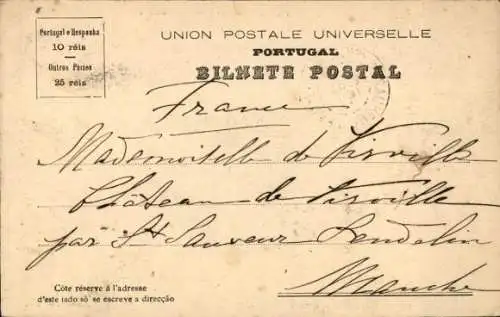 Portugal e Hespanha
10 réis
Outros Paizes
25 réis
UNION POSTALE UNIVERSELLE
PORTUGAL
BILHETE POSTAL
France
Mademoiselle de Virville
Château de Virville
par St Sauveur Lendelin
Manche
Côte réservé à l'adresse
d'este lado só se escreve a direcção